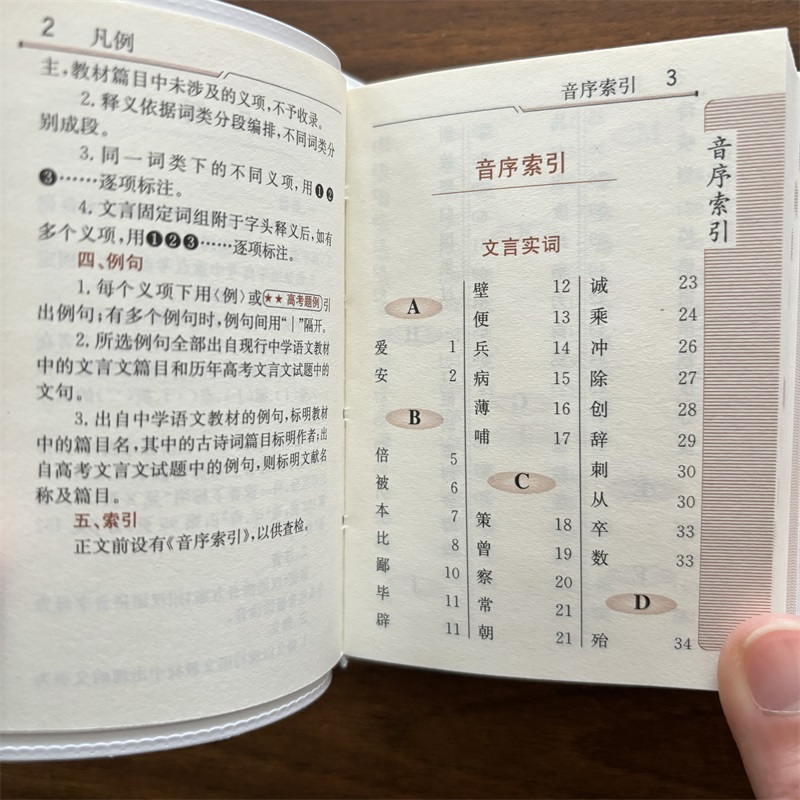 2 凡例
主,教材篇目中未涉及的义项,不予收录。
2. 释义依据词类分段编排,不同词类分
别成段。
3. 同一词类下的不同义项,用❶❷
❸……逐项标注。
4. 文言固定词组附于字头释义后,如有
多个义项,用❶❷❸……逐项标注。
四、例句
1. 每个义项下用〈例〉或★★高考题例引
出例句;有多个例句时,例句间用“|”隔开。
2. 所选例句全部出自现行中学语文教材
中的文言文篇目和历年高考文言文试题中的
文句。
3. 出自中学语文教材的例句,标明教材
中的篇目名,其中的古诗词篇目标明作者;出
自高考文言文试题中的例句,则标明文献名
称及篇目。
五、索引
正文前设有《音序索引》,以供查检。
音序索引 3
音序索引
文言实词
A
爱 1
安 2
B
倍 5
被 6
本 7
比 8
鄙 10
毕 11
辟 11
壁 12
便 13
兵 14
病 15
薄 16
哺 17
C
策 18
曾 19
察 20
常 21
朝 21
诚 23
乘 24
冲 26
除 27
创 28
辞 29
刺 30
从 30
卒 33
数 33
D
殆 34
音序索引